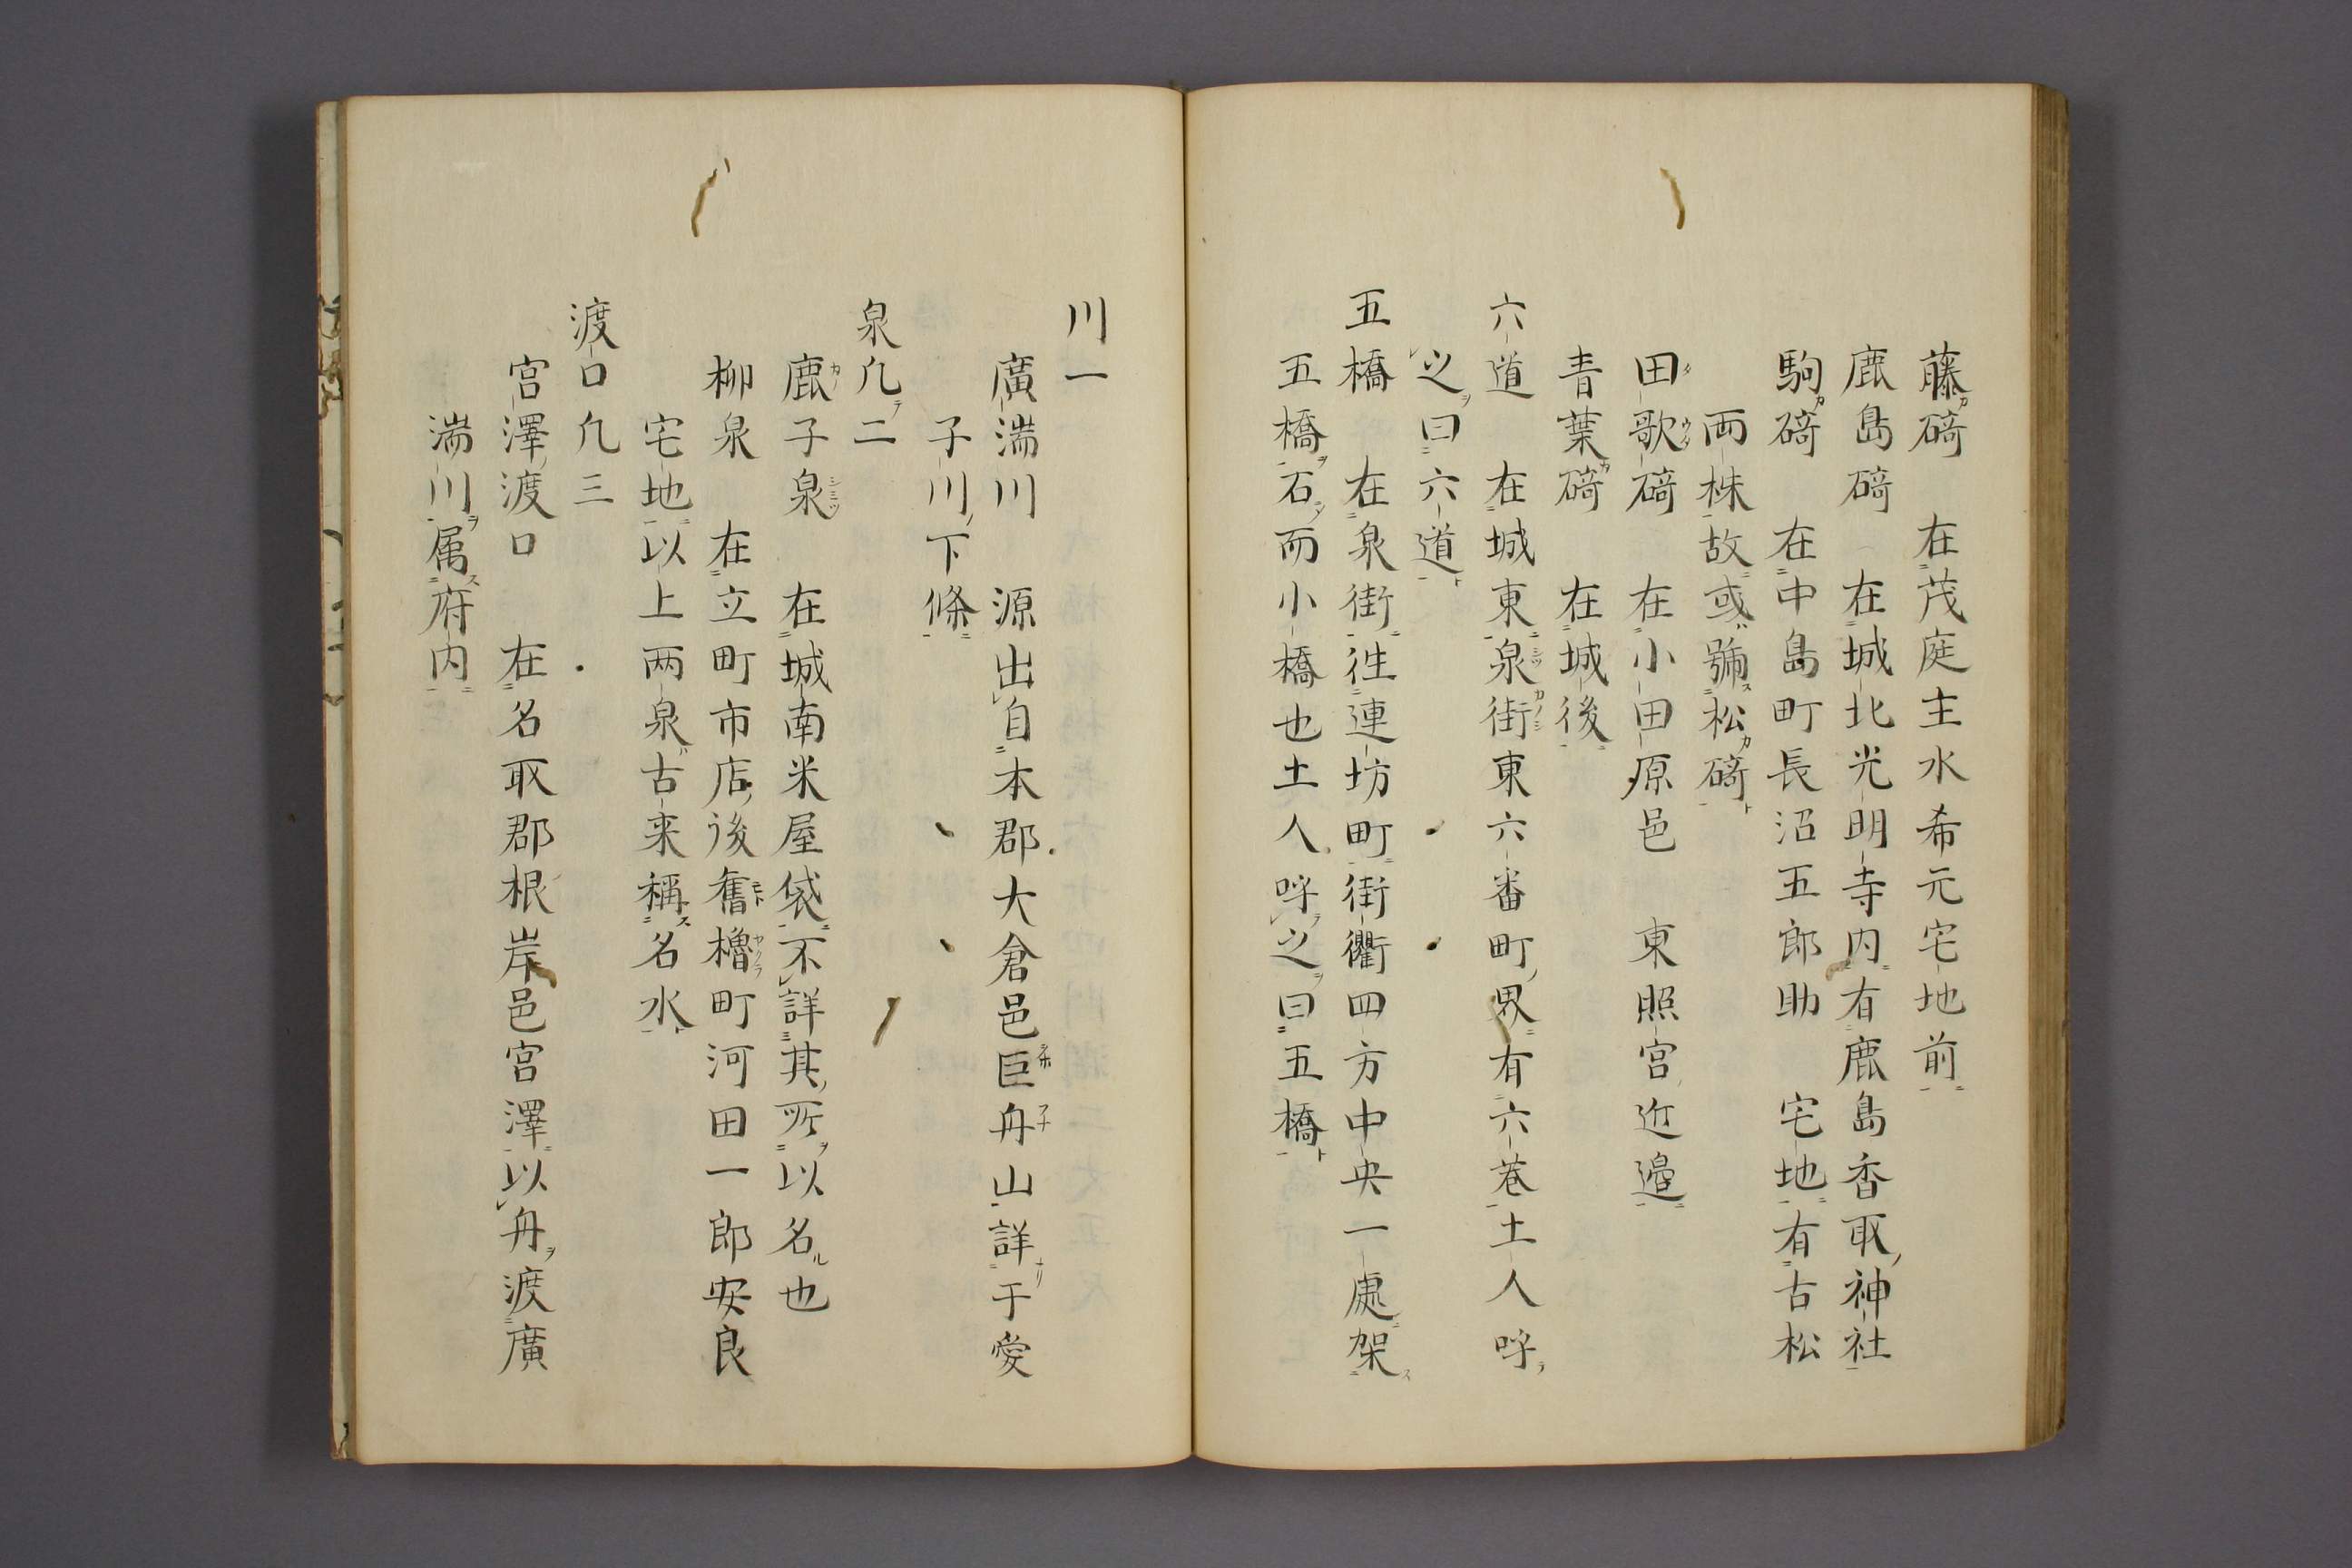 藤碕　在茂庭主水希元宅地前
鹿島碕　在城北光明寺内有鹿島香取神社
駒碕　在中島町長沼五郎助　宅地有古松
両株故或號松碕
田歌碕　在小田原邑　東照宮近邉
青葉碕　在城後
六道　在城東泉街東六番町界有六巷土人呼
之曰六道
五橋　在泉街徃連坊町街衢四方中央一處架
五橋石而小橋也土人呼之曰五橋
川一
廣湍川　源出自本郡大倉邑巨舟山詳于愛
子川下條
泉凢二
鹿子泉　在城南米屋袋不詳其所以名也
柳泉　在立町市店後舊櫓町河田一郎安良
宅地以上兩泉古来稱名水
渡口凢三
宮澤渡口　在名取郡根岸邑宮澤以舟渡廣
湍川属府内